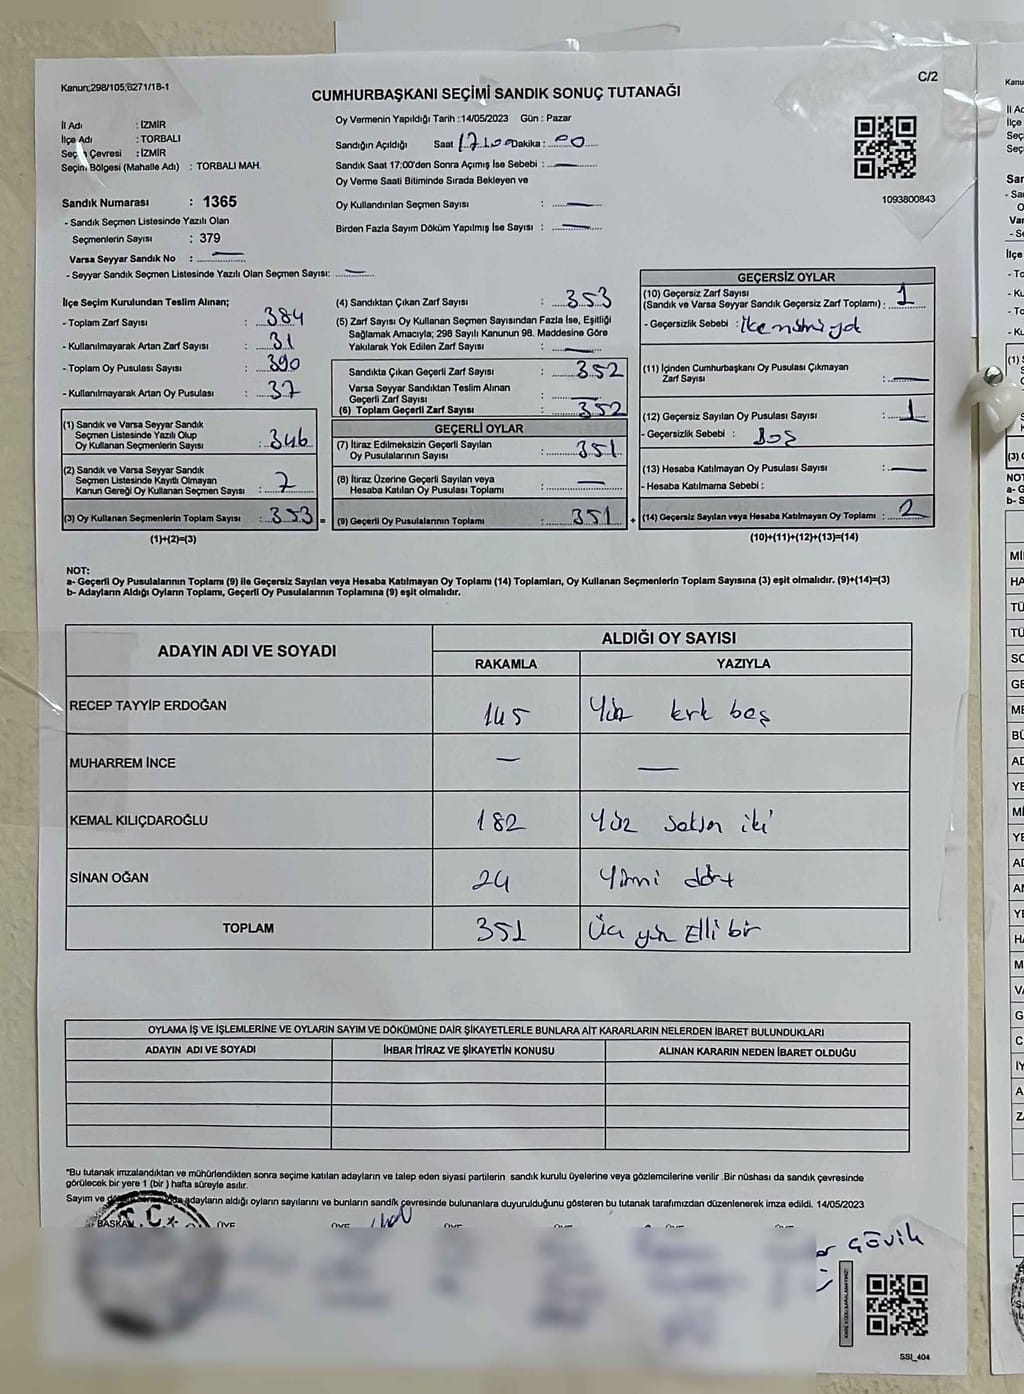 Kanun;298/105,6271/18-1
C/2
CUMHURBAŞKANI SEÇİMİ SANDIK SONUÇ TUTANAĞI
İl Adı : İZMİR
İlçe Adı : TORBALI
Seçim Çevresi : İZMİR
Seçim Bölgesi (Mahalle Adı) : TORBALI MAH.
Sandık Numarası : 1365
- Sandık Seçmen Listesinde Yazılı Olan
Seçmenlerin Sayısı : 379
Varsa Seyyar Sandık No : —
- Seyyar Sandık Seçmen Listesinde Yazılı Olan Seçmen Sayısı: —
Oy Vermenin Yapıldığı Tarih :14/05/2023 Gün : Pazar
Sandığın Açıldığı Saat 17:00 Dakika : 00
Sandık Saat 17:00'den Sonra Açımış İse Sebebi : —
Oy Verme Saati Bitiminde Sırada Bekleyen ve
Oy Kullandırılan Seçmen Sayısı : —
Birden Fazla Sayım Döküm Yapılmış İse Sayısı : —
1093800843
İlçe Seçim Kurulundan Teslim Alınan;
- Toplam Zarf Sayısı : 384
- Kullanılmayarak Artan Zarf Sayısı : 31
- Toplam Oy Pusulası Sayısı : 390
- Kullanılmayarak Artan Oy Pusulası : 37
(1) Sandık ve Varsa Seyyar Sandık
Seçmen Listesinde Yazılı Olup
Oy Kullanan Seçmenlerin Sayısı : 346
(2) Sandık ve Varsa Seyyar Sandık
Seçmen Listesinde Kayıtlı Olmayan
Kanun Gereği Oy Kullanan Seçmen Sayısı : 7
(3) Oy Kullanan Seçmenlerin Toplam Sayısı : 353 =
(1)+(2)=(3)
(4) Sandıktan Çıkan Zarf Sayısı : 353
(5) Zarf Sayısı Oy Kullanan Seçmen Sayısından Fazla İse, Eşitliği
Sağlamak Amacıyla; 298 Sayılı Kanunun 98. Maddesine Göre
Yakılarak Yok Edilen Zarf Sayısı : —
Sandıkta Çıkan Geçerli Zarf Sayısı : 352
Varsa Seyyar Sandıktan Teslim Alınan
Geçerli Zarf Sayısı : —
(6) Toplam Geçerli Zarf Sayısı : 352
GEÇERLİ OYLAR
(7) İtiraz Edilmeksizin Geçerli Sayılan
Oy Pusulalarının Sayısı : 351
(8) İtiraz Üzerine Geçerli Sayılan veya
Hesaba Katılan Oy Pusulası Toplamı : —
(9) Geçerli Oy Pusulalarının Toplamı : 351 +
GEÇERSİZ OYLAR
(10) Geçersiz Zarf Sayısı
(Sandık ve Varsa Seyyar Sandık Geçersiz Zarf Toplamı) : 1
- Geçersizlik Sebebi :
(11) İçinden Cumhurbaşkanı Oy Pusulası Çıkmayan
Zarf Sayısı : —
(12) Geçersiz Sayılan Oy Pusulası Sayısı : 1
- Geçersizlik Sebebi : Boş
(13) Hesaba Katılmayan Oy Pusulası Sayısı : —
- Hesaba Katılmama Sebebi :
(14) Geçersiz Sayılan veya Hesaba Katılmayan Oy Toplamı : 2
(10)+(11)+(12)+(13)=(14)
NOT:
a- Geçerli Oy Pusulalarının Toplamı (9) ile Geçersiz Sayılan veya Hesaba Katılmayan Oy Toplamı (14) Toplamları, Oy Kullanan Seçmenlerin Toplam Sayısına (3) eşit olmalıdır. (9)+(14)=(3)
b- Adayların Aldığı Oyların Toplamı, Geçerli Oy Pusulalarının Toplamına (9) eşit olmalıdır.
ADAYIN ADI VE SOYADI
ALDIĞI OY SAYISI
RAKAMLA YAZIYLA
RECEP TAYYİP ERDOĞAN 145 Yüz kırk beş
MUHARREM İNCE — —
KEMAL KILIÇDAROĞLU 182 Yüz seksen iki
SİNAN OĞAN 24 Yirmi dört
TOPLAM 351 Üç yüz Elli bir
OYLAMA İŞ VE İŞLEMLERİNE VE OYLARIN SAYIM VE DÖKÜMÜNE DAİR ŞİKAYETLERLE BUNLARA AİT KARARLARIN NELERDEN İBARET BULUNDUKLARI
ADAYIN ADI VE SOYADI İHBAR İTİRAZ VE ŞİKAYETİN KONUSU ALINAN KARARIN NEDEN İBARET OLDUĞU
"Bu tutanak imzalandıktan ve mühürlendikten sonra seçime katılan adayların ve talep eden siyasi partilerin sandık kurulu üyelerine veya gözlemcilerine verilir .Bir nüshası da sandık çevresinde
görülecek bir yere 1 (bir ) hafta süreyle asılır.
Sayım ve adayların aldığı oyların sayılarını ve bunların sandık çevresinde bulunanlara duyurulduğunu gösteren bu tutanak tarafımızdan düzenlenerek imza edildi. 14/05/2023
BAŞKAN ÜYE ÜYE ÜYE ÜYE ÜYE ÜYE
SSI_404